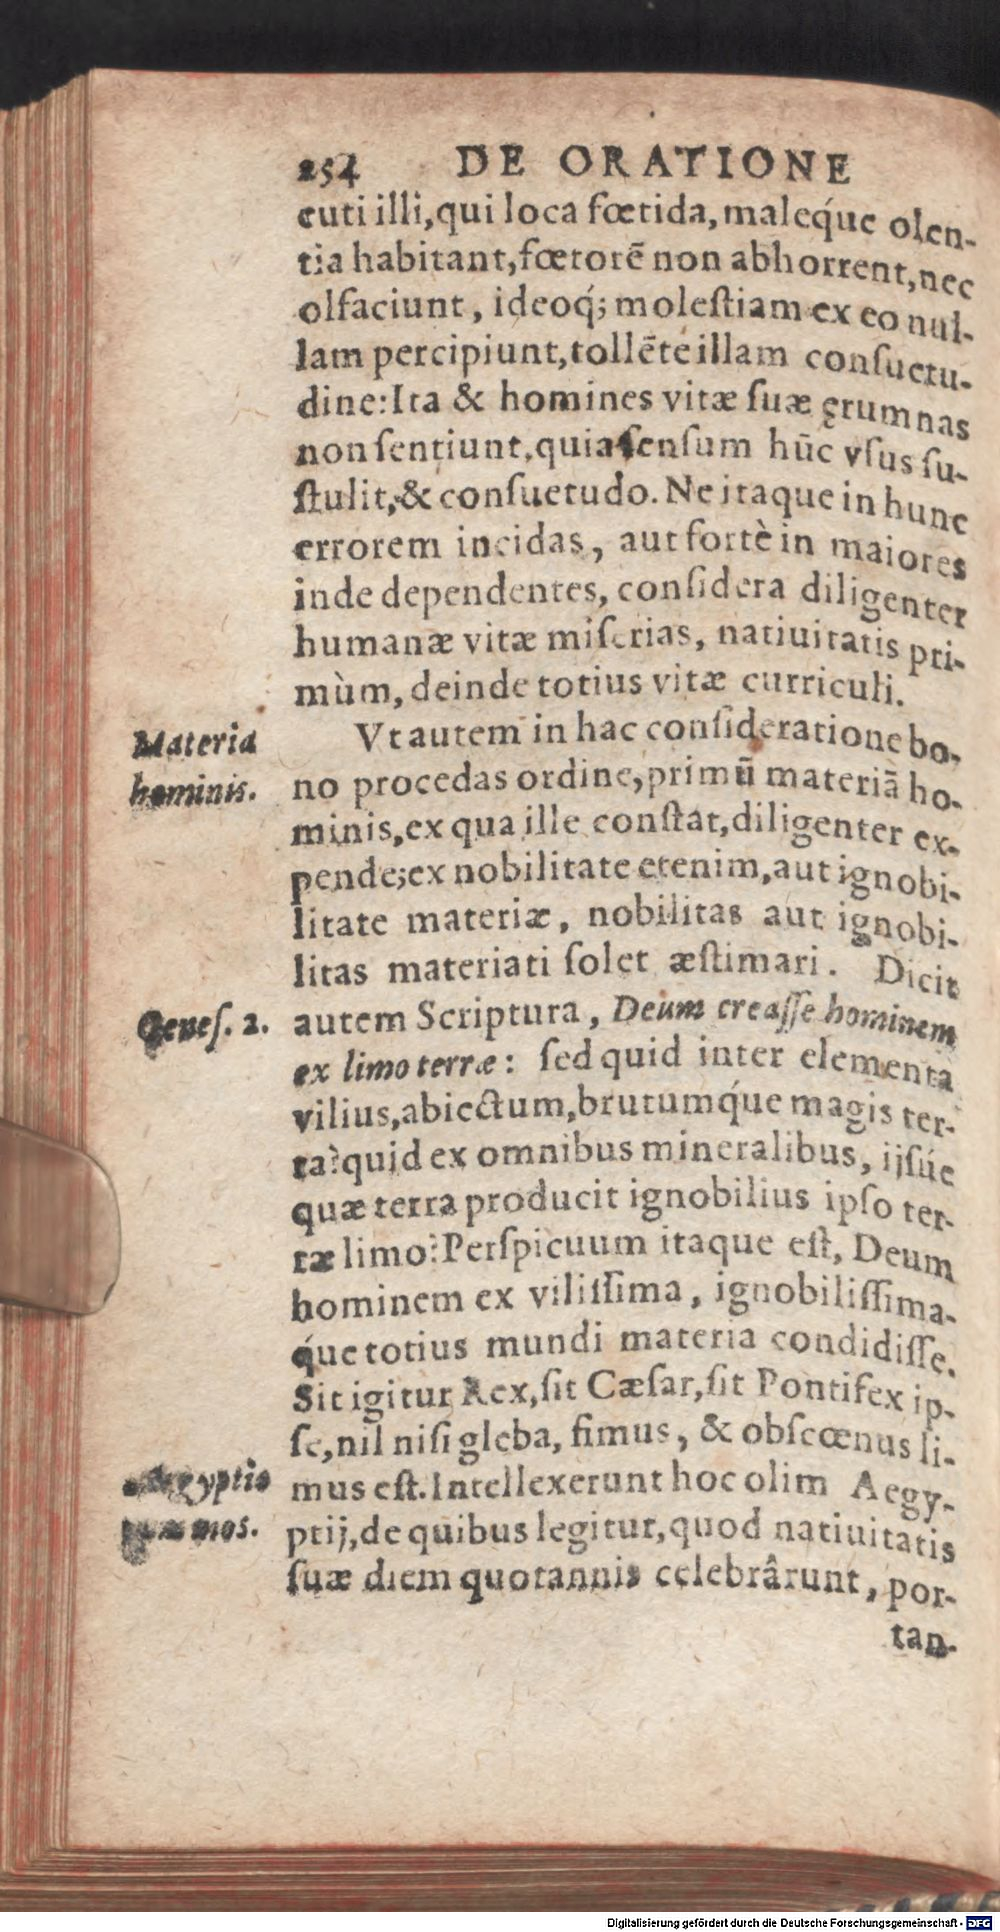 254 DE ORATIONE
cuti illi, qui loca fœtida, maleq́ue olen-
tia habitant, fœtorē non abhorrent, nec
olfaciunt, ideoq́; moleſtiam ex eo nul-
lam percipiunt, tollēte illam conſuetu-
dine: Ita & homines vitæ ſuæ ęrumnas
non ſentiunt, quia ſenſum hūc vſus ſu-
ſtulit, & conſuetudo. Ne itaque in hunc
errorem incidas, aut fortè in maiores
inde dependentes, conſidera diligenter
humanæ vitæ miſerias, natiuitatis pri-
mùm, deinde totius vitæ curriculi.
Materia
hominis.
Vt autem in hac conſideratione bo-
no procedas ordine, primū materiā ho-
minis, ex qua ille conſtat, diligenter ex-
pende; ex nobilitate etenim, aut ignobi-
litate materiæ, nobilitas aut ignobi-
litas materiati ſolet æſtimari. Dicit
Geneſ. 2.
autem Scriptura, Deum creaſſe hominem
ex limo terræ: ſed quid inter elementa
vilius, abiectum, brutumq́ue magis ter-
ra? quid ex omnibus mineralibus, ijſúe
quæ terra producit ignobilius ipſo ter-
ræ limo? Perſpicuum itaque eſt, Deum
hominem ex viliſſima, ignobiliſſima-
q́ue totius mundi materia condidiſſe.
Sit igitur Rex, ſit Cæſar, ſit Pontifex ip-
ſe, nil niſi gleba, fimus, & obſcœnus li-
mus eſt. Intellexerunt hoc olim Aegy-
ptij, de quibus legitur, quod natiuitatis
ſuæ diem quotannis celebrârunt, por-
Aegyptio
mos.
tan-
Digitalisierung gefördert durch die Deutsche Forschungsgemeinschaft - DFG